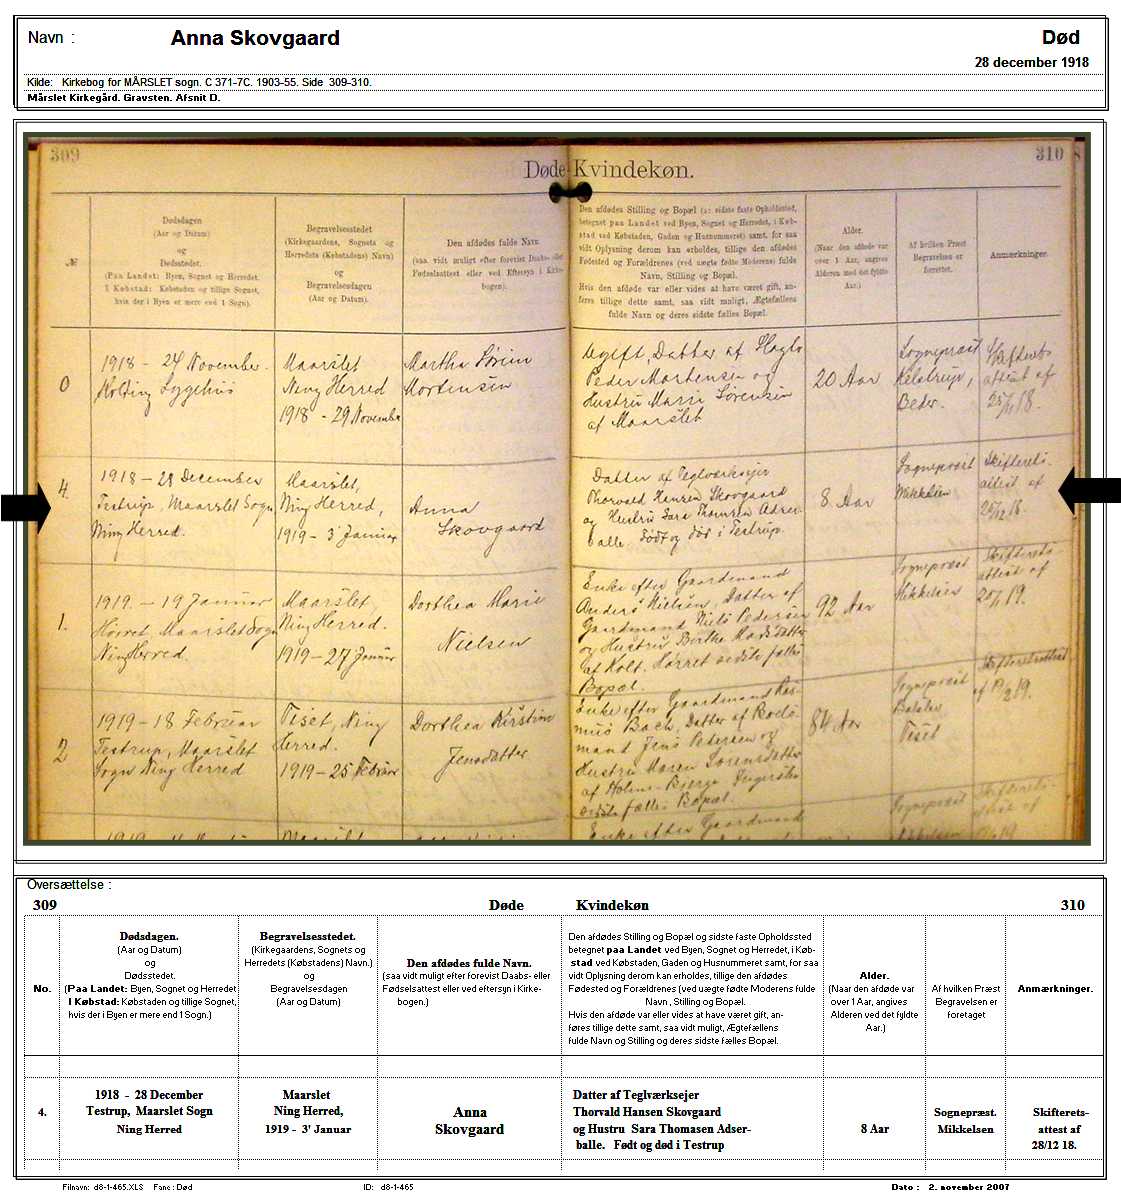 Navn :
Anna Skovgaard
Død
28 december 1918
Kilde: Kirkebog for MÅRSLET sogn. C 371-7C. 1903-55. Side 309-310.
Mårslet Kirkegård. Gravsten. Afsnit D.
309
Døde Kvindekøn.
310
№
Dødsdagen
(Aar og Datum)
og
Dødsstedet.
(Paa Landet: Byen, Sognet og Herredet.
I Købstad: Købstaden og tillige Sognet,
hvis der i Byen er mere end 1 Sogn).
Begravelsesstedet
(Kirkegaardens, Sognets og
Herredets (Købstadens) Navn)
og
Begravelsesdagen
(Aar og Datum).
Den afdødes fulde Navn
(saa vidt muligt efter forevist Daabs- eller
Fødselsattest eller ved Eftersyn i Kirke-
bogen).
Den afdødes Stilling og Bopæl (ɔ: sidste faste Opholdssted,
betegnet paa Landet ved Byen, Sognet og Herredet, i Køb-
stad ved Købstaden, Gaden og Husnummeret) samt, for saa
vidt Oplysning derom kan erholdes, tillige den afdødes
Fødested og Forældrenes (ved uægte fødte Moderens) fulde
Navn, Stilling og Bopæl.
Hvis den afdøde var eller vides at have været gift, an-
føres tillige dette samt, saa vidt muligt, Ægtefællens
fulde Navn og deres sidste fælles Bopæl.
Alder.
(Naar den afdøde var
over 1 Aar, angives
Alderen med det fyldte
Aar.)
Af hvilken Præst
Begravelsen er
forrettet.
Anmærkninger.
0
1918 - 24 November.
Kolding Sygehus
Maarslet
Ning Herred
1918 - 29 November
Martha Sørine
Mortensen
Ugift, Datter af
Peder Mortensen og
Hustru Marie Sørensen
af Maarslet
20 Aar
Sognepræst
Kelstrup,
Beder.
Skifterets-
attest af
25/11 18.
4.
1918 - 28 December
Testrup, Maarslet Sogn
Ning Herred.
Maarslet,
Ning Herred,
1919 - 3' Januar
Anna
Skovgaard
Datter af Teglværksejer
Thorvald Hansen Skovgaard
og Hustru Sara Thomsen Adser-
balle. Født og død i Testrup.
8 Aar
Sognepræst
Mikkelsen
Skifterets-
attest af
28/12 18.
1.
1919. - 19 Januar
Hørret, Maarslet Sogn
Ning Herred.
Maarslet,
Ning Herred.
1919 - 27 Januar
Dorthea Marie
Nielsen
Enke efter Gaardmand
Anders Nielsen, Datter af
Gaardmand Niels Pedersen
og Hustru Birthe Madsdatter
af Holt. Hørret sidste fælles
Bopæl.
92 Aar
Sognepræst
Mikkelsen
Skifterets-
attest af
2
1919 - 18 Februar
Testrup, Maarslet
Sogn Ning Herred
Tiset, Ning
Herred.
1919 - 25 Februar
Dorthea Kirstine
Jensdatter
Enke efter Gaardmand Ras-
mus Bach, Datter af
mand Jens Pedersen og
Hustru Maren Sørensdatter
af Holme-Bjerge
sidste fælles Bopæl.
84 Aar
Sognepræst
Tiset
Skifteretsattest
Maarslet
Enke efter Gaardmand
Sognepræst
Mikkelsen
Skifterets-
attest af
Oversættelse :
309
Døde Kvindekøn
310
No.
Dødsdagen.
(Aar og Datum)
og
Dødsstedet.
(Paa Landet: Byen, Sognet og Herredet
I Købstad: Købstaden og tillige Sognet,
hvis der i Byen er mere end 1 Sogn.)
Begravelsesstedet.
(Kirkegaardens, Sognets og
Herredets (Købstadens) Navn.)
og
Begravelsesdagen
(Aar og Datum)
Den afdødes fulde Navn.
(saa vidt muligt efter forevist Daabs- eller
Fødselsattest eller ved eftersyn i Kirke-
bogen.)
Den afdødes Stilling og Bopæl og sidste faste Opholdssted
betegnet paa Landet ved Byen, Sognet og Herredet, i Køb-
stad ved Købstaden, Gaden og Husnummeret samt, for saa
vidt Oplysning derom kan erholdes, tillige den afdødes
Fødested og Forældrenes (ved uægte fødte Moderens fulde
Navn, Stilling og Bopæl.
Hvis den afdøde var eller vides at have været gift, an-
føres tillige dette samt, saa vidt muligt, Ægtefællens
fulde Navn og Stilling og deres sidste fælles Bopæl.
Alder.
(Naar den afdøde var
over 1 Aar, angives
Alderen ved det fyldte
Aar.)
Af hvilken Præst
Begravelsen er
foretaget
Anmærkninger.
4.
1918 - 28 December
Testrup, Maarslet Sogn
Ning Herred
Maarslet
Ning Herred,
1919 - 3' Januar
Anna
Skovgaard
Datter af Teglværksejer
Thorvald Hansen Skovgaard
og Hustru Sara Thomasen Adser-
balle. Født og død i Testrup
8 Aar
Sognepræst.
Mikkelsen
Skifterets-
attest af
28/12 18.
Filnavn: d8-1-465.XLS Fane: Død
ID: d8-1-465
Dato : 2. november 2007